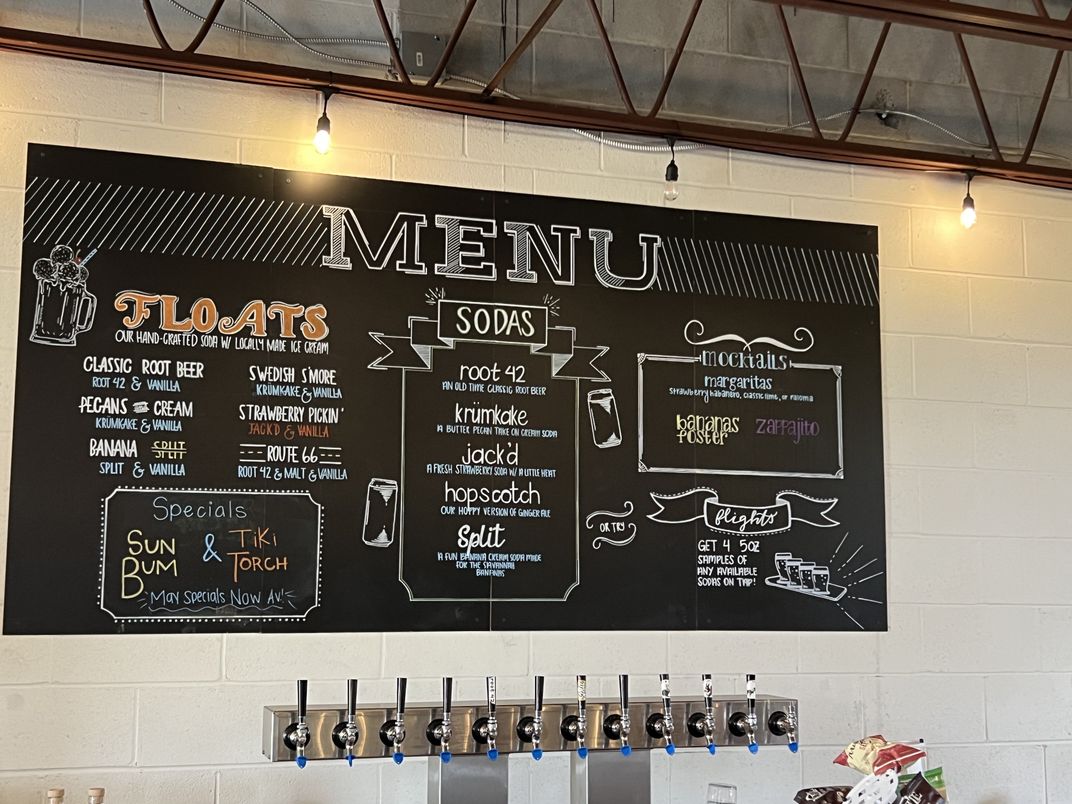 MENU
FLOATS
OUR HAND-CRAFTED SODA W/ LOCALLY MADE ICE CREAM
CLASSIC ROOT BEER
ROOT 42 & VANILLA
PECANS AND CREAM
KRÜMKAKE & VANILLA
BANANA SPLIT
SPLIT & VANILLA
SWEDISH S'MORE
KRÜMKAKE & VANILLA
STRAWBERRY PICKIN'
JACK'D & VANILLA
ROUTE 66
ROOT 42 & MALT & VANILLA
Specials
SUN BUM & TIKI TORCH
May Specials Now Av!
SODAS
root 42
AN OLD TIME CLASSIC ROOT BEER
krümkake
A BUTTER PECAN TAKE ON CREAM SODA
jack'd
A FRESH STRAWBERRY SODA W/ A LITTLE HEAT
hopscotch
OUR HOPPY VERSION OF GINGER ALE
Split
A FUN BANANA CREAM SODA MADE
FOR THE SAVANNAH
BANANAS
OR TRY
mocktails
margaritas
strawberry habanero, classic lime, or paloma
bananas foster
zappajito
flights
GET 4 5OZ
SAMPLES OF
ANY AVAILABLE
SODAS ON TAP!